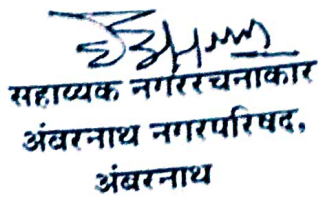 सहाय्यक नगररचनाकार
अंबरनाथ नगरपरिषद,
अंबरनाथ